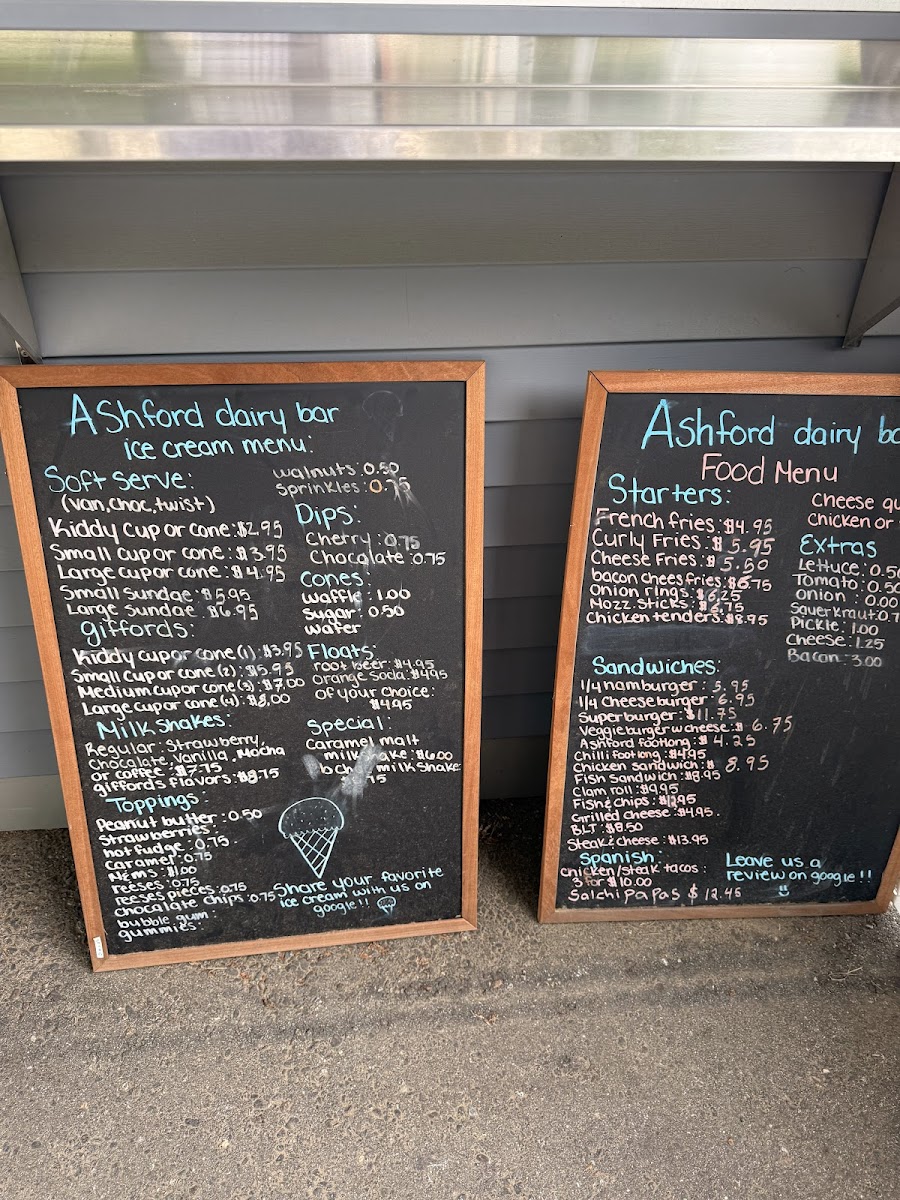 Ashford dairy bar
ice cream menu:
Soft serve:
(van, choc, twist)
Kiddy cup or cone: $2.95
Small cup or cone: $3.95
Large cup or cone: $4.95
Small sundae: $5.95
Large sundae $6.95
giffords:
Kiddy cup or cone (1): $3.95
Small cup or cone (2): $5.95
Medium cup or cone (3): $7.00
Large cup or cone (4): $8.00
Milk shakes:
Regular: Strawberry,
Chocolate, Vanilla, Mocha
or coffee: $7.75
giffords flavors: $8.75
Toppings
Peanut butter: 0.50
Strawberries:
hot fudge: 0.75
Caramel: 0.75
M&ms: $1.00
reeses: 0.75
reeses pieces: 0.75
chocolate chips: 0.75
bubble gum:
gummies:
walnuts: 0.50
Sprinkles: 0.75
Dips:
Cherry: 0.75
Chocolate: 0.75
Cones:
Waffle: 1.00
Sugar: 0.50
wafer
Floats:
root beer: $4.95
Orange Soda: $4.95
of your choice:
$4.95
Special:
Caramel malt
milk shake: $6.00
milk shake:
Share your favorite
ice cream with us on
google!!
Ashford dairy
Food Menu
Starters:
French fries: $4.95
Curly Fries: $5.95
Cheese Fries: $5.50
bacon chees fries: $6.75
Onion rings: $6.25
Mozz. Sticks: $6.75
Chicken tenders: $8.95
Sandwiches:
1/4 hamburger: 5.95
1/4 cheeseburger: 6.95
Superburger: $11.75
Veggie burger w cheese: $6.75
Ashford footlong: $4.25
Chilli footlong: $4.95
Chicken sandwich: $8.95
Fish sandwich: $8.95
Clam roll: $9.95
Fish & chips:
Grilled cheese: $4.95.
BLT: $8.50
Steak & cheese: $13.95
Spanish:
Chicken/steak tacos:
3 for $10.00
Salchi papas $12.45
Cheese
Chicken or
Extras
Lettuce: 0.50
Tomato: 0.50
Onion: 0.00
Sauerkraut: 0.7
Pickle: 1.00
Cheese: 1.25
Bacon: 3.00
Leave us a
review on google!!